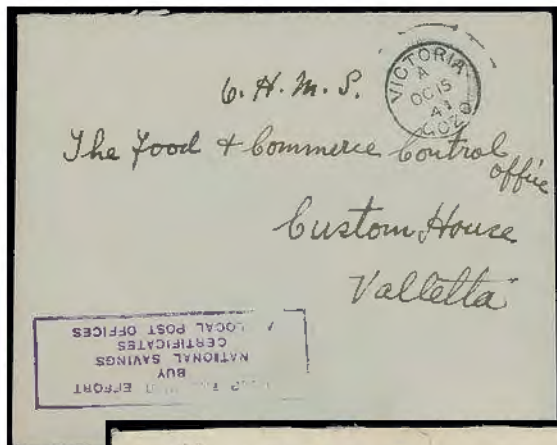 O. H. M. S.
VICTORIA
A
OC 15
41
GOZO
The Food & Commerce Control
office
Custom House
Valletta
EFFORT
BUY
NATIONAL SAVINGS
CERTIFICATES
LOCAL POST OFFICES